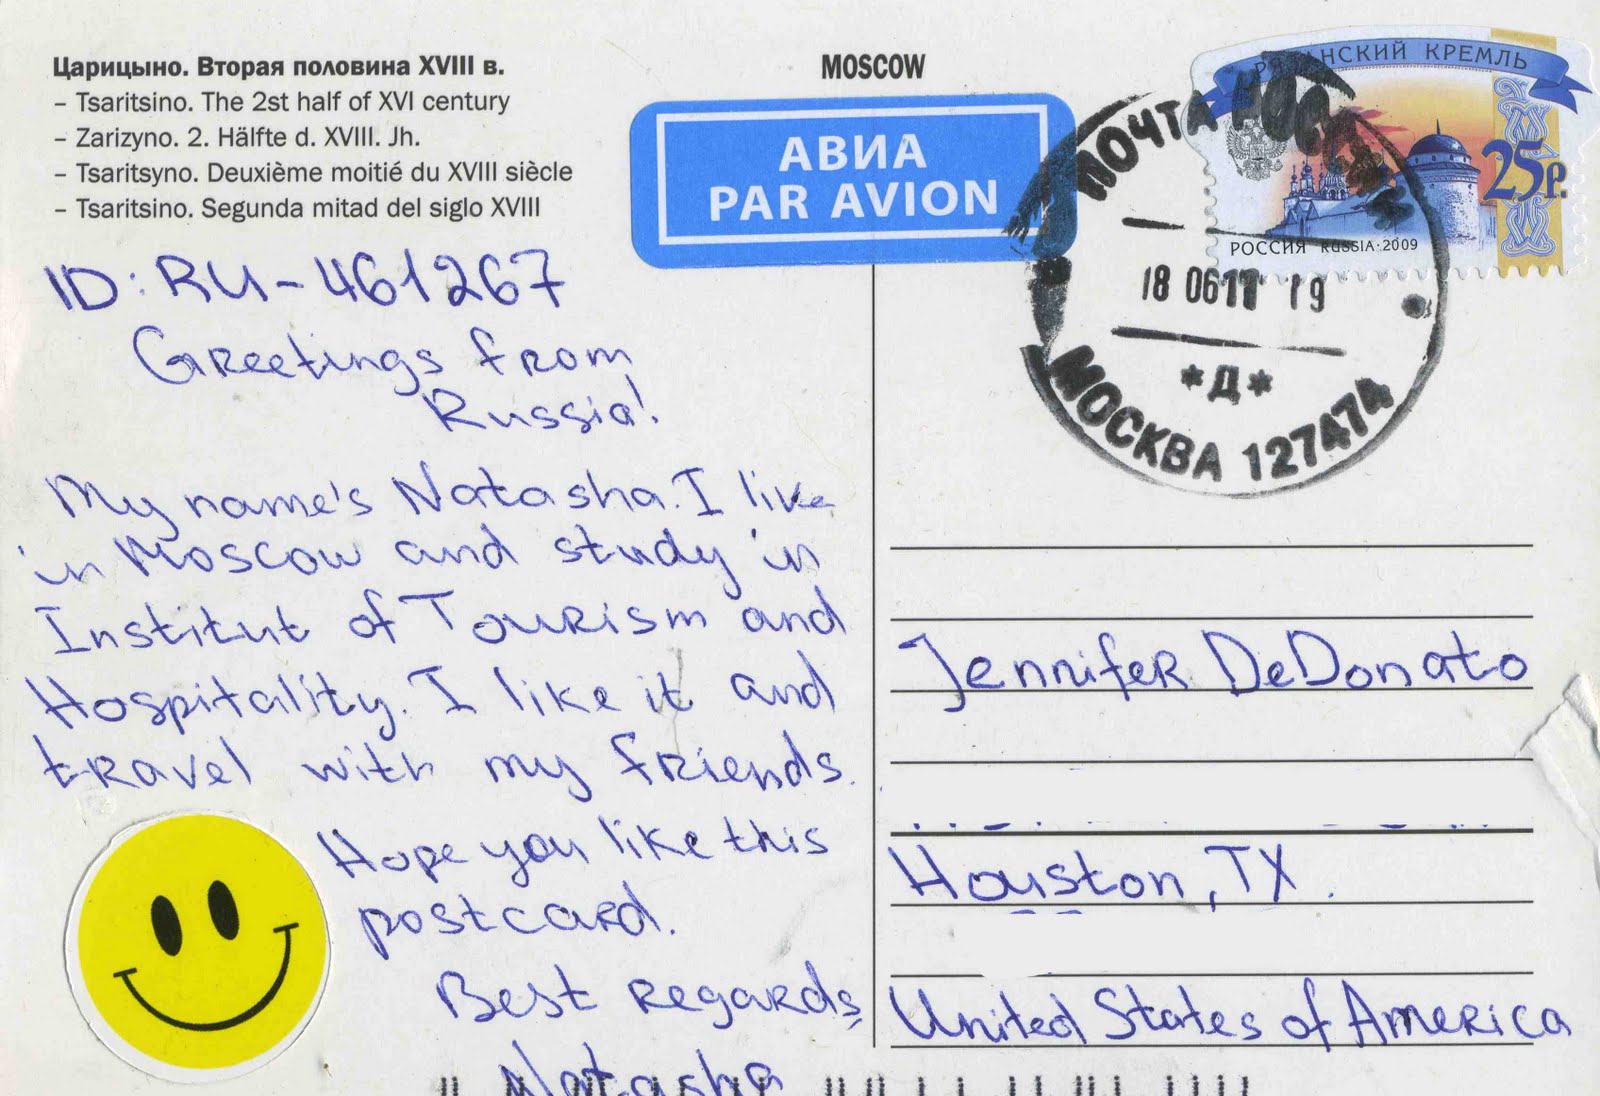 Царицыно. Вторая половина XVIII в.
– Tsaritsino. The 2st half of XVI century
– Zarizyno. 2. Hälfte d. XVIII. Jh.
– Tsaritsyno. Deuxième moitié du XVIII siècle
– Tsaritsino. Segunda mitad del siglo XVIII
MOSCOW
АВИА
PAR AVION
РЯЗАНСКИЙ КРЕМЛЬ
25р.
РОССИЯ RUSSIA·2009
ПОЧТА РОССИИ
18 0611 19
*Д*
МОСКВА 127474
ID: RU-461267
Greetings from
Russia!
My name's Natasha. I like
in Moscow and study in
Institut of Tourism and
Hospitality. I like it and
travel with my friends.
Hope you like this
postcard.
Best regards,
Natasha
Jennifer DeDonato
Houston, TX.
United States of America